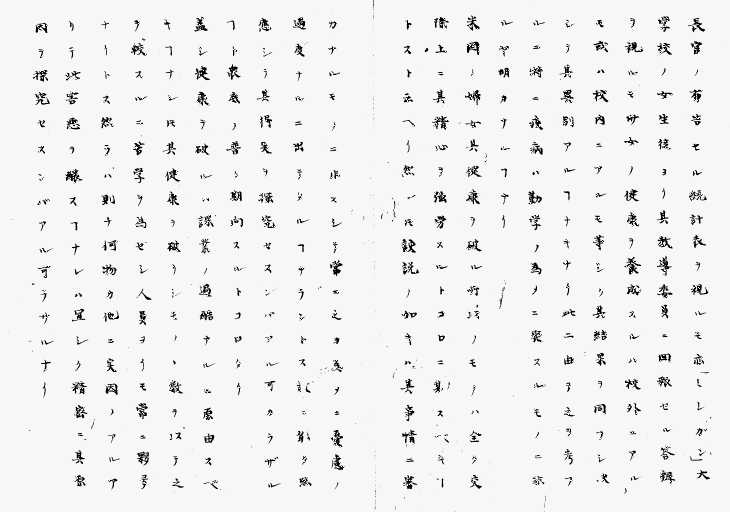 長官ノ報告セル統計表ヲ視ルモ亦「ミシガン」大
学校ノ女生徒ヨリ其教導委員ニ回報セル答辨
ヲ視ルモ少女ノ健康ヲ養成スルハ校外ニアル
モ或ハ校内ニアルモ等シク其結果ヲ同フシ决
シテ其異別アルヿナキナリ此ニ由テ之ヲ考フ
ルニ特ニ疾病ハ勤学ノ為メニ発スルモノニ非
ルヤ明カナルヿナリ
米国ノ婦女其健康ヲ破ル所以ノモノハ全ク交
際上ニ其精心ヲ強労スルトコロニ スヘキ
トスト云ヘリ然 氏論説ノ如キハ其事情ニ審
カナルモノニ非スシテ常ニ之カ為メニ憂慮ノ
過度ナルニ出テタルヿナラントス ニ 然
應シテ其得失ヲ探究セスンバアル可カラザル
ヿト衆庶ノ普ク期向スルトコロタリ
蓋シ健康ヲ破ルハ課業ノ過酷ナルニ原由スベ
キヿナシ 其健康ヲ破リシモノヽ数ヲ以テ之
ヲ較スルニ苦学ヲ為セシ人員ヨリモ常ニ夥多
ナートス然ラハ則チ何物カ他ニ実因ノアルア
リテ此害悪ヲ醸スヿナレハ宜シク精密ニ其原
因ヲ探究セスンバアル可ラザルナリ